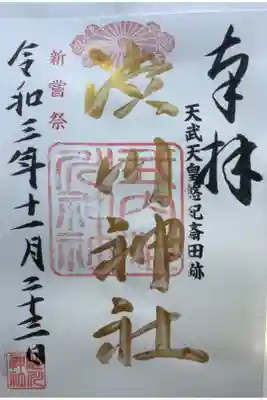 奉拝
天武天皇悠紀斎田跡
渋川神社
新嘗祭
令和三年十一月二十三日